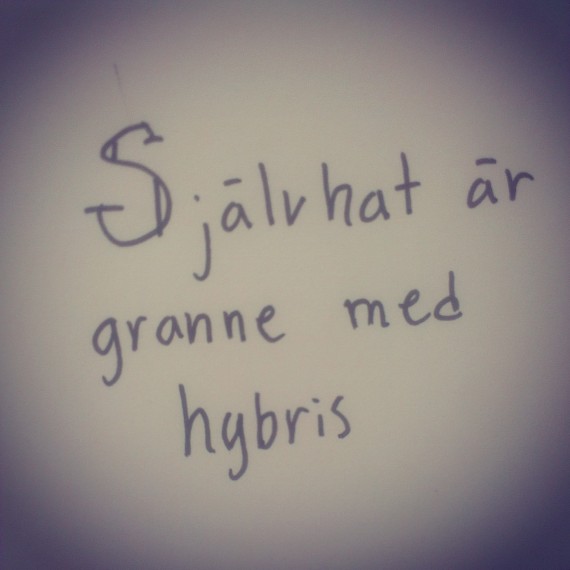 Självhat är
granne med
hybris